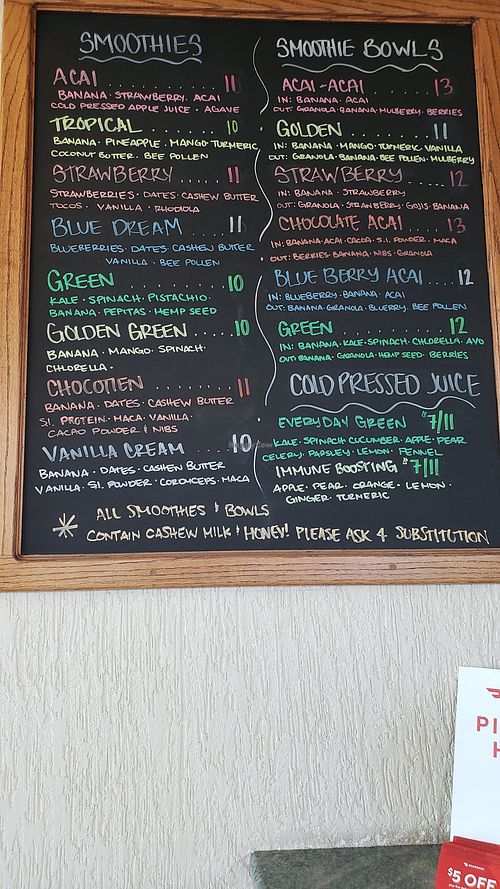 SMOOTHIES
ACAI ........... 11
BANANA · STRAWBERRY · ACAI
COLD PRESSED APPLE JUICE · AGAVE
TROPICAL ........... 10
BANANA · PINEAPPLE · MANGO · TURMERIC
COCONUT BUTTER · BEE POLLEN
STRAWBERRY ...... 11
STRAWBERRIES · DATES · CASHEW BUTTER
TOCOS · VANILLA · RHODIOLA
BLUE DREAM ..... 11
BLUEBERRIES · DATES CASHEW BUTTER
· VANILLA · BEE POLLEN
GREEN ........... 10
KALE · SPINACH · PISTACHIO ·
BANANA · PEPITAS · HEMP SEED
GOLDEN GREEN ..... 10
BANANA · MANGO · SPINACH ·
CHLORELLA ·
CHOCOTIEN ........ 11
BANANA · DATES · CASHEW BUTTER
S.I. PROTEIN · MACA · VANILLA ·
CACAO POWDER & NIBS
VANILLA CREAM .... 10
BANANA · DATES · CASHEN BUTTER
VANILLA · S.I. POWDER · CORDYCEPS · MACA
SMOOTHIE BOWLS
ACAI-ACAI ......... 13
IN: BANANA · ACAI
OUT: GRANOLA · BANANA · MULBERRY · BERRIES
GOLDEN ........ 11
IN: BANANA · MANGO · TURMERIC VANILLA
OUT: GRANOLA · BANANA · BEE POLLEN · MULBERRY
STRAWBERRY ..... 12
IN: BANANA · STRAWBERRY
OUT: GRANOLA · STRAWBERRY · GOJIS · BANANA
CHOCOLATE ACAI ..... 13
IN: BANANA · ACAI · CACOA · S.I. POWDER · MACA
OUT: BERRIES · BANANA · NIBS · GRANOLA
BLUE BERRY ACAI .. 12
IN: BLUEBERRY · BANANA · ACAI
OUT: BANANA · GRANOLA · BLUERRY · BEE POLLEN
GREEN 12
IN: BANANA · KALE · SPINACH · CHLORELLA · AVO
OUT: BANANA · GRANOLA · HEMP SEED · BERRIES
COLD PRESSED JUICE
EVERYDAY GREEN $7/11
KALE · SPINACH CUCUMBER · APPLE · PEAR
CELERY · PARSLEY · LEMON · FENNEL
IMMUNE BOOSTING $7/11
APPLE · PEAR · ORANGE · LEMON ·
GINGER · TURMERIC
* ALL SMOOTHIES & BOWLS
CONTAIN CASHEW MILK & HONEY! PLEASE ASK 4 SUBSTITUTION
PI
H
$5 OFF